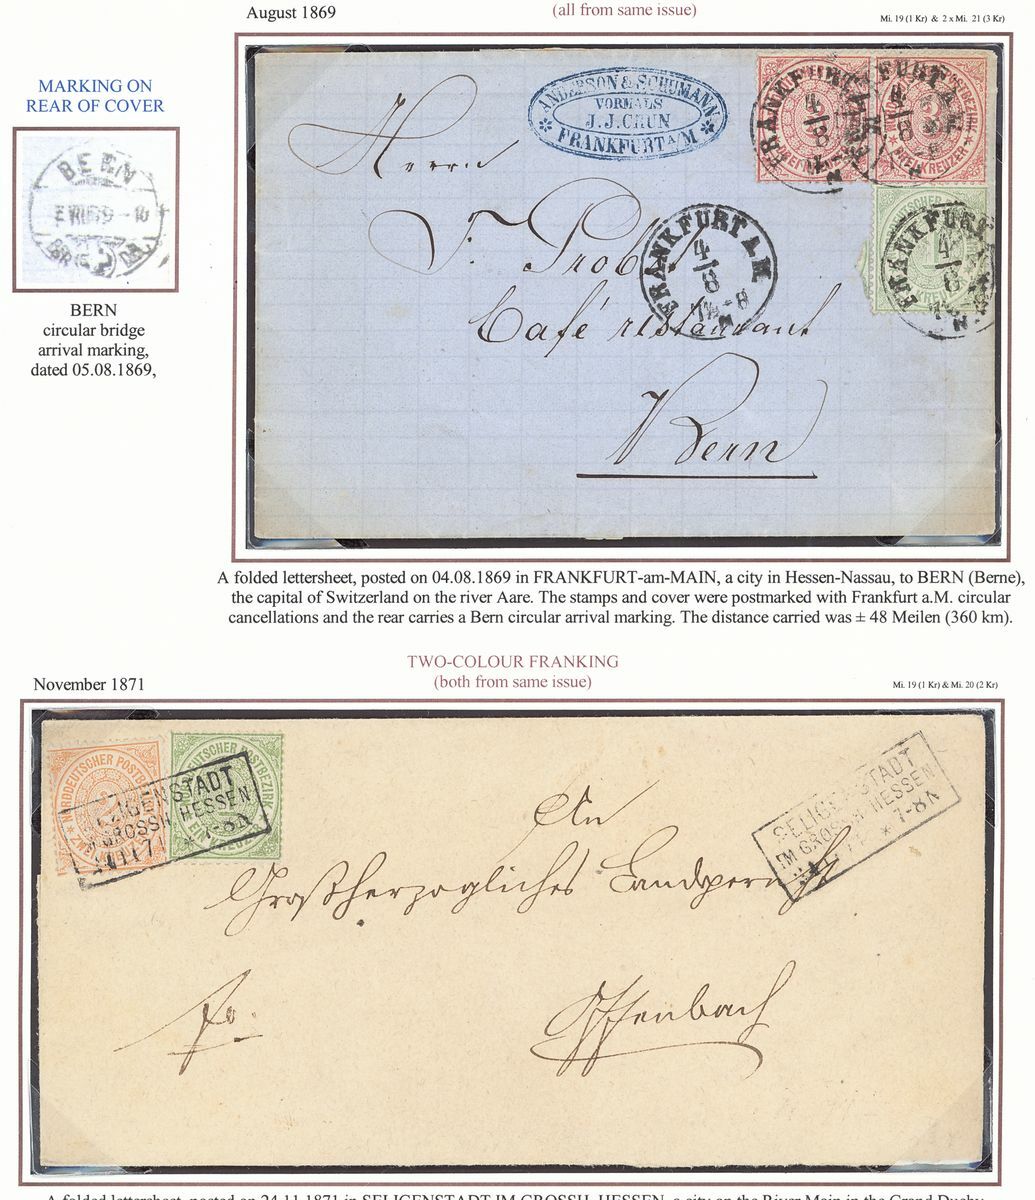 August 1869
(all from same issue)
Mi. 19 (1 Kr) & 2 x Mi. 21 (3 Kr)
MARKING ON
REAR OF COVER
BERN
BERN
circular bridge
arrival marking,
dated 05.08.1869,
ANDERSON & SCHUMANN
VORMALS
J.J. CHUN
FRANKFURT A/M
FRANKFURT A.M.
4/8
FRANKFURT A.M.
4/8
FRANKFURT A.M.
4/8
FRANKFURT A.M.
4/8
Herrn
F. Probst
Café restaurant
Bern
A folded lettersheet, posted on 04.08.1869 in FRANKFURT-am-MAIN, a city in Hessen-Nassau, to BERN (Berne),
the capital of Switzerland on the river Aare. The stamps and cover were postmarked with Frankfurt a.M. circular
cancellations and the rear carries a Bern circular arrival marking. The distance carried was ± 48 Meilen (360 km).
TWO-COLOUR FRANKING
(both from same issue)
November 1871
Mi. 19 (1 Kr) & Mi. 20 (2 Kr)
NORDDEUTSCHER POSTBEZIRK
SELIGENSTADT
IM GROSSH. HESSEN
* 7-8 N
SELIGENSTADT
IM GROSSH. HESSEN
* 7-8 N
An
Großherzogliches
Offenbach
A folded lettersheet, posted on 24.11.1871 in SELIGENSTADT IM GROSSH. HESSEN, a city on the River Main in the Grand Duchy